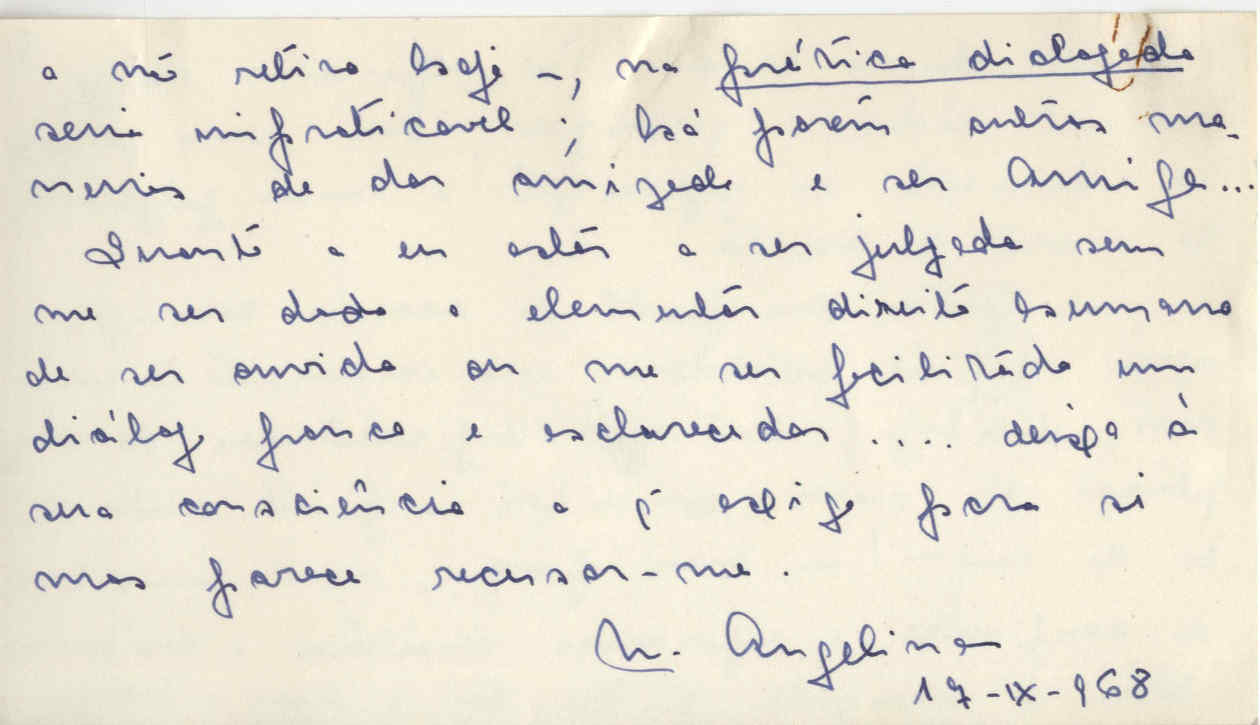 a não retiro hoje –, na prática dialogada
seria impraticavel; há porém outras ma-
neiras de dar amizade e ser Amiga...
Quanto a eu estar a ser julgada sem
me ser dado o elementar direito humano
de ser ouvida ou me ser facilitado um
diálogo franco e esclarecedor .... deixo à
sua consciência o q' exige para si
mas parece recusar-me.
M. Angelina
17-IX-968